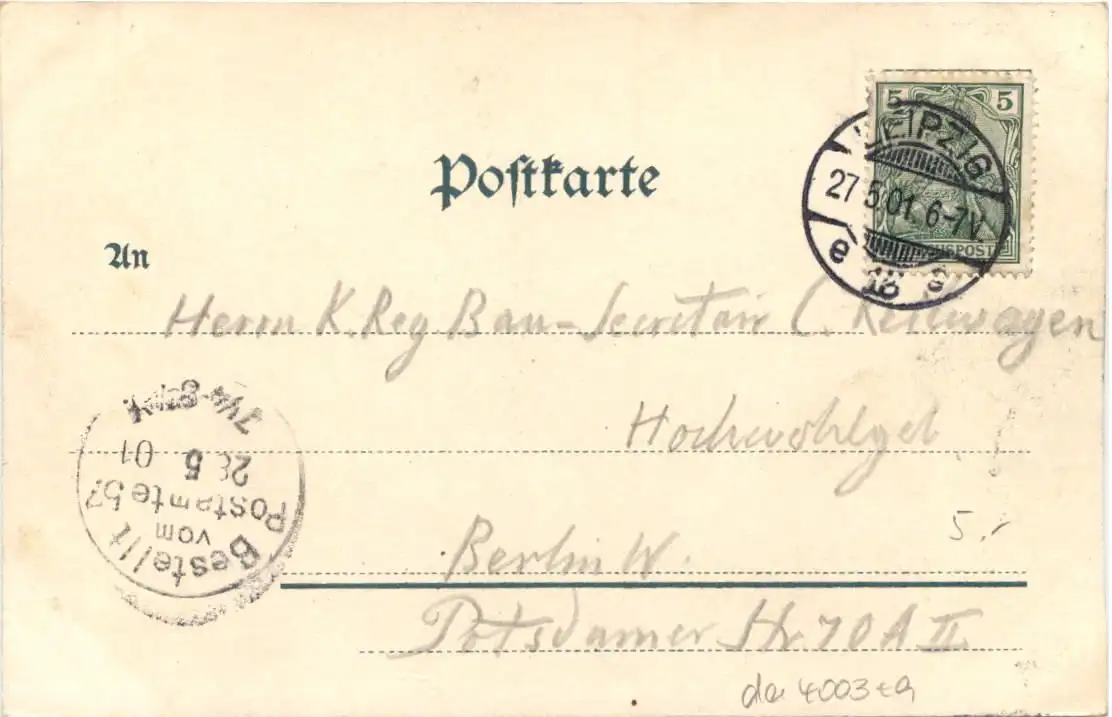 Postkarte
5 5
LEIPZIG
27.5.01. 6-7V.
e 13 e
REICHSPOST
An
Herrn K. Reg Bau-Secretair C.
Hochwohlgeb
Berlin W.
Potsdamer Str. 70A II
Bestellt
vom
Postamte 57
28 5 01
7¼-8½V
5.-
da 4003 ea